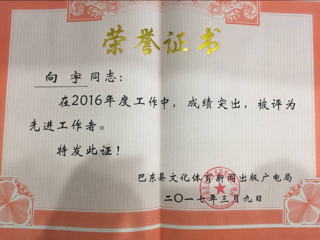 荣誉证书
向宇同志：
在2016年度工作中，成绩突出，被评为
先进工作者。
特发此证！
巴东县文化体育新闻出版广电局
二〇一七年三月九日